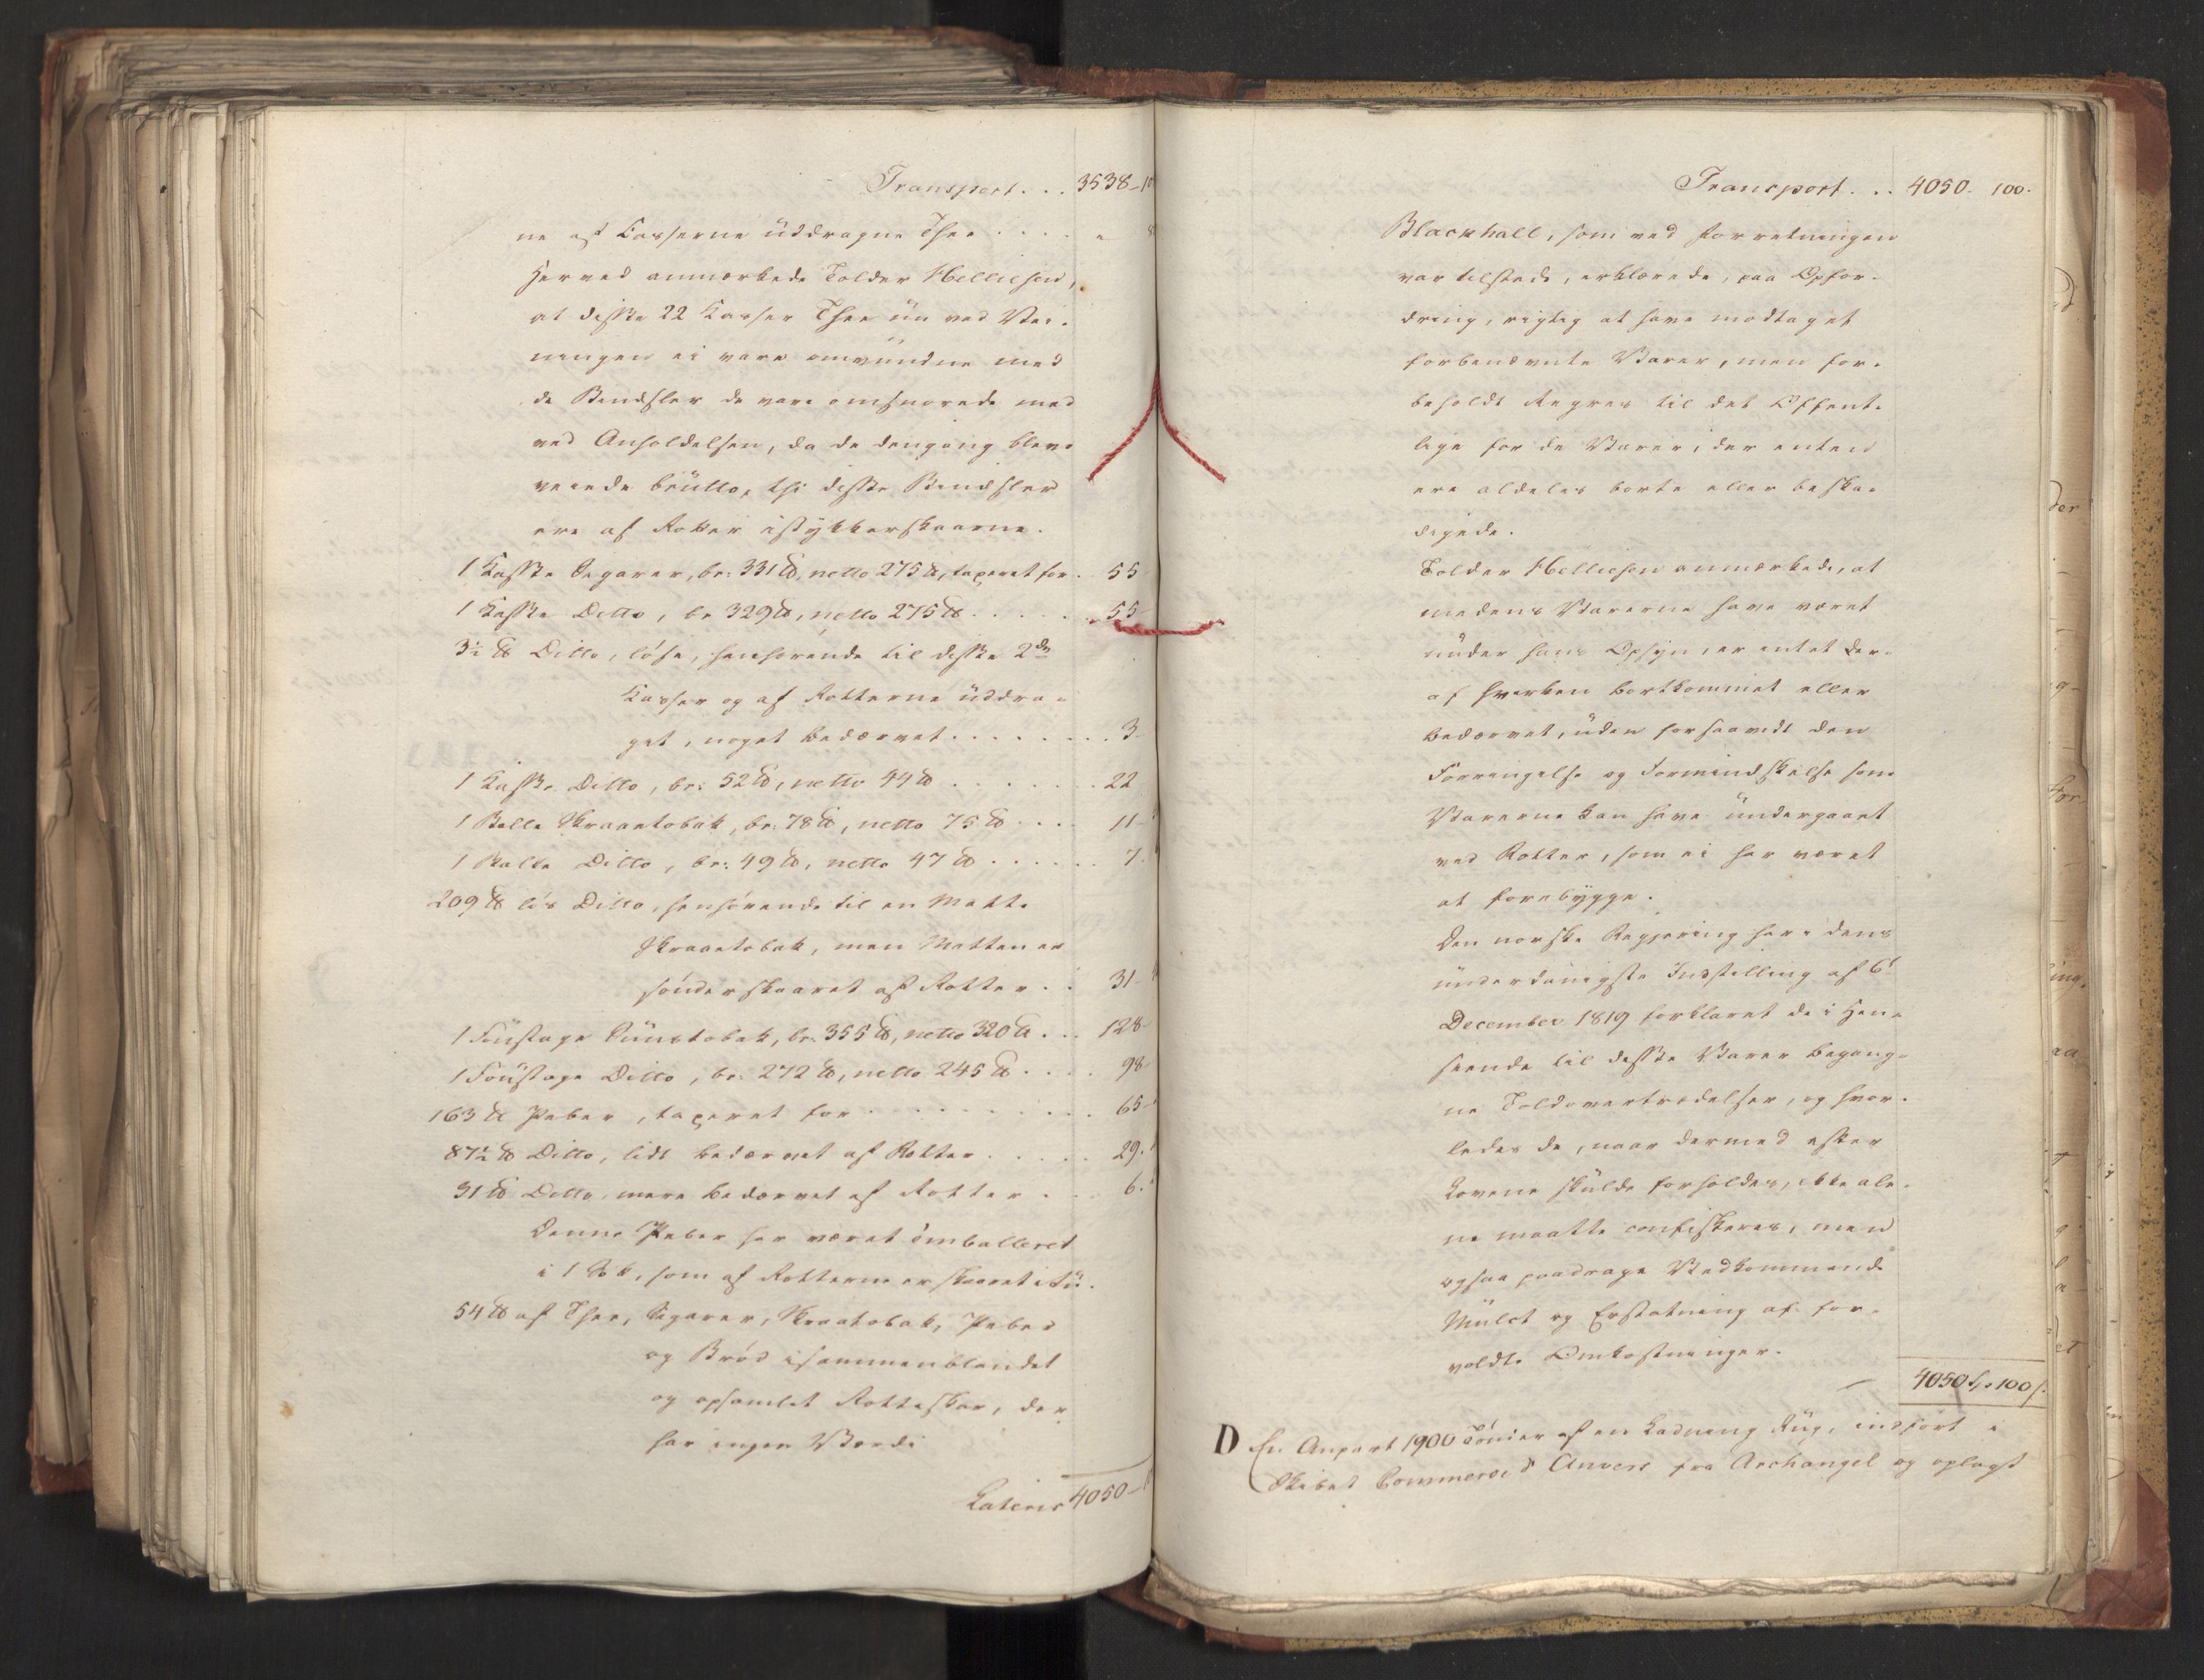 Transport . . . 3538 - 10
ne af Kasserne uddragne Thee . . . . "
Herved anmærkede Tolder Helliesen,
at disse 22 Kasser Thee nu ved Vei-
ningen ei vare omvundne med
de Bendsler de vare omsnorede med
ved Anholdelsen, da de dengang bleve
veiede brutto, thi disse Bendsler
ere af Rotter istykkerskaarne.
1 Kasse Segarer, br: 331 ℔, netto 275 ℔, taxeret for . 55
1 Kasse Ditto, br 329 ℔, netto 275 ℔ . . . . . . 55
3½ ℔ Ditto, løse, henhørende til disse 2de
Kasser og af Rotterne uddra-
get, noget bedærvet . . . . . . . . 3-
1 Kasse Ditto, br: 52 ℔, netto 44 ℔ . . . . . . . 22
1 Balle Skraaetobak, br: 78 ℔, netto 75 ℔ . . . . 11-
1 Balle Ditto, br: 49 ℔, netto 47 ℔ . . . . . . 7.
209 ℔ løs Ditto, henhørende til en Matte
Skraaetobak, men Matten er
sønderskaaret af Rotter . . 31-
1 Foustage Duustobak, br: 355 ℔, netto 320 ℔ . . . 128-
1 Foustage Ditto, br: 272 ℔, netto 245 ℔ . . . . 98-
163 ℔ Peber, taxeret for . . . . . . . . . . 65-
87½ ℔ Ditto, lidt bedærvet af Rotter . . . . . 29.
31 ℔ Ditto, mere bedærvet af Rotter . . . 6.
Denne Peber har været emballeret
i 1 Sæk, som af Rotterne er skaaret itu.
54 ℔ af Thee, Sigarer, Skraatobak, Peber
og Brød isammenblandet
og opsamlet Rotteskar, der
har ingen Værdi
Lateris 4050 -
Transport . . . 4050 - 100 -
Blackhall, som ved Forretningen
var tilstede, erklærede, paa Opfor-
dring, rigtig at have modtaget
forbenævnte Varer, men for-
beholdt Regres til det Offent-
lige for de Varer, der enten
ere aldeles borte eller beska-
digede.
Tolder Helliesen anmærkede, at
medens Varerne have været
under hans Opsyn, er intet der-
af hverken bortkommet eller
bedærvet, uden forsaavidt den
Forringelse og Formindskelse som
Varerne kan have undergaaet
ved Rotter, som ei har været
at forebygge.
Den norske Regjering har i dens
underdanigste Indstilling af 6t
December 1819 forklaret de i Hen-
seende til disse Varer begang-
ne Toldovertrædelser, og hvor-
ledes de, naar dermed efter
Lovene skulde forholdes, ikke ale-
ne maatte confiskeres, men
ogsaa paadrage Vedkommende
Mulct og Erstatning af for-
voldte Omkostninger.
4050 - 100 s.
D En Anpart 1900 Tønder af en Ladning Rug, indført i
Skibet Commerce d'Anvers fra Archangel og oplagt